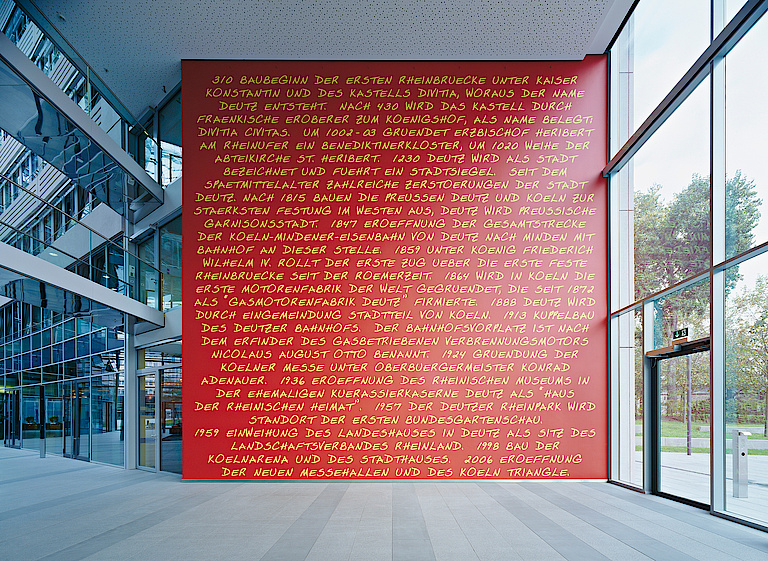 310 BAUBEGINN DER ERSTEN RHEINBRUECKE UNTER KAISER
KONSTANTIN UND DES KASTELLS DIVITIA, WORAUS DER NAME
DEUTZ ENTSTEHT. NACH 430 WIRD DAS KASTELL DURCH
FRAENKISCHE EROBERER ZUM KOENIGSHOF, ALS NAME BELEGT:
DIVITIA CIVITAS. UM 1002-03 GRUENDET ERZBISCHOF HERIBERT
AM RHEINUFER EIN BENEDIKTINERKLOSTER, UM 1020 WEIHE DER
ABTEIKIRCHE ST. HERIBERT. 1230 DEUTZ WIRD ALS STADT
BEZEICHNET UND FUEHRT EIN STADTSIEGEL. SEIT DEM
SPAETMITTELALTER ZAHLREICHE ZERSTOERUNGEN DER STADT
DEUTZ. NACH 1815 BAUEN DIE PREUSSEN DEUTZ UND KOELN ZUR
STAERKSTEN FESTUNG IM WESTEN AUS, DEUTZ WIRD PREUSSISCHE
GARNISONSSTADT. 1847 EROEFFNUNG DER GESAMTSTRECKE
DER KOELN-MINDENER-EISENBAHN VON DEUTZ NACH MINDEN MIT
BAHNHOF AN DIESER STELLE. 1859 UNTER KOENIG FRIEDERICH
WILHELM IV. ROLLT DER ERSTE ZUG UEBER DIE ERSTE FESTE
RHEINBRUECKE SEIT DER ROEMERZEIT. 1864 WIRD IN KOELN DIE
ERSTE MOTORENFABRIK DER WELT GEGRUENDET, DIE SEIT 1872
ALS "GASMOTORENFABRIK DEUTZ" FIRMIERTE. 1888 DEUTZ WIRD
DURCH EINGEMEINDUNG STADTTEIL VON KOELN. 1913 KUPPELBAU
DES DEUTZER BAHNHOFS. DER BAHNHOFSVORPLATZ IST NACH
DEM ERFINDER DES GASBETRIEBENEN VERBRENNUNGSMOTORS
NICOLAUS AUGUST OTTO BENANNT. 1924 GRUENDUNG DER
KOELNER MESSE UNTER OBERBUERGERMEISTER KONRAD
ADENAUER. 1936 EROEFFNUNG DES RHEINISCHEN MUSEUMS IN
DER EHEMALIGEN KUERASSIERKASERNE DEUTZ ALS "HAUS
DER RHEINISCHEN HEIMAT". 1957 DER DEUTZER RHEINPARK WIRD
STANDORT DER ERSTEN BUNDESGARTENSCHAU.
1959 EINWEIHUNG DES LANDESHAUSES IN DEUTZ ALS SITZ DES
LANDSCHAFTSVERBANDES RHEINLAND. 1998 BAU DER
KOELNARENA UND DES STADTHAUSES. 2006 EROEFFNUNG
DER NEUEN MESSEHALLEN UND DES KOELN TRIANGLE.